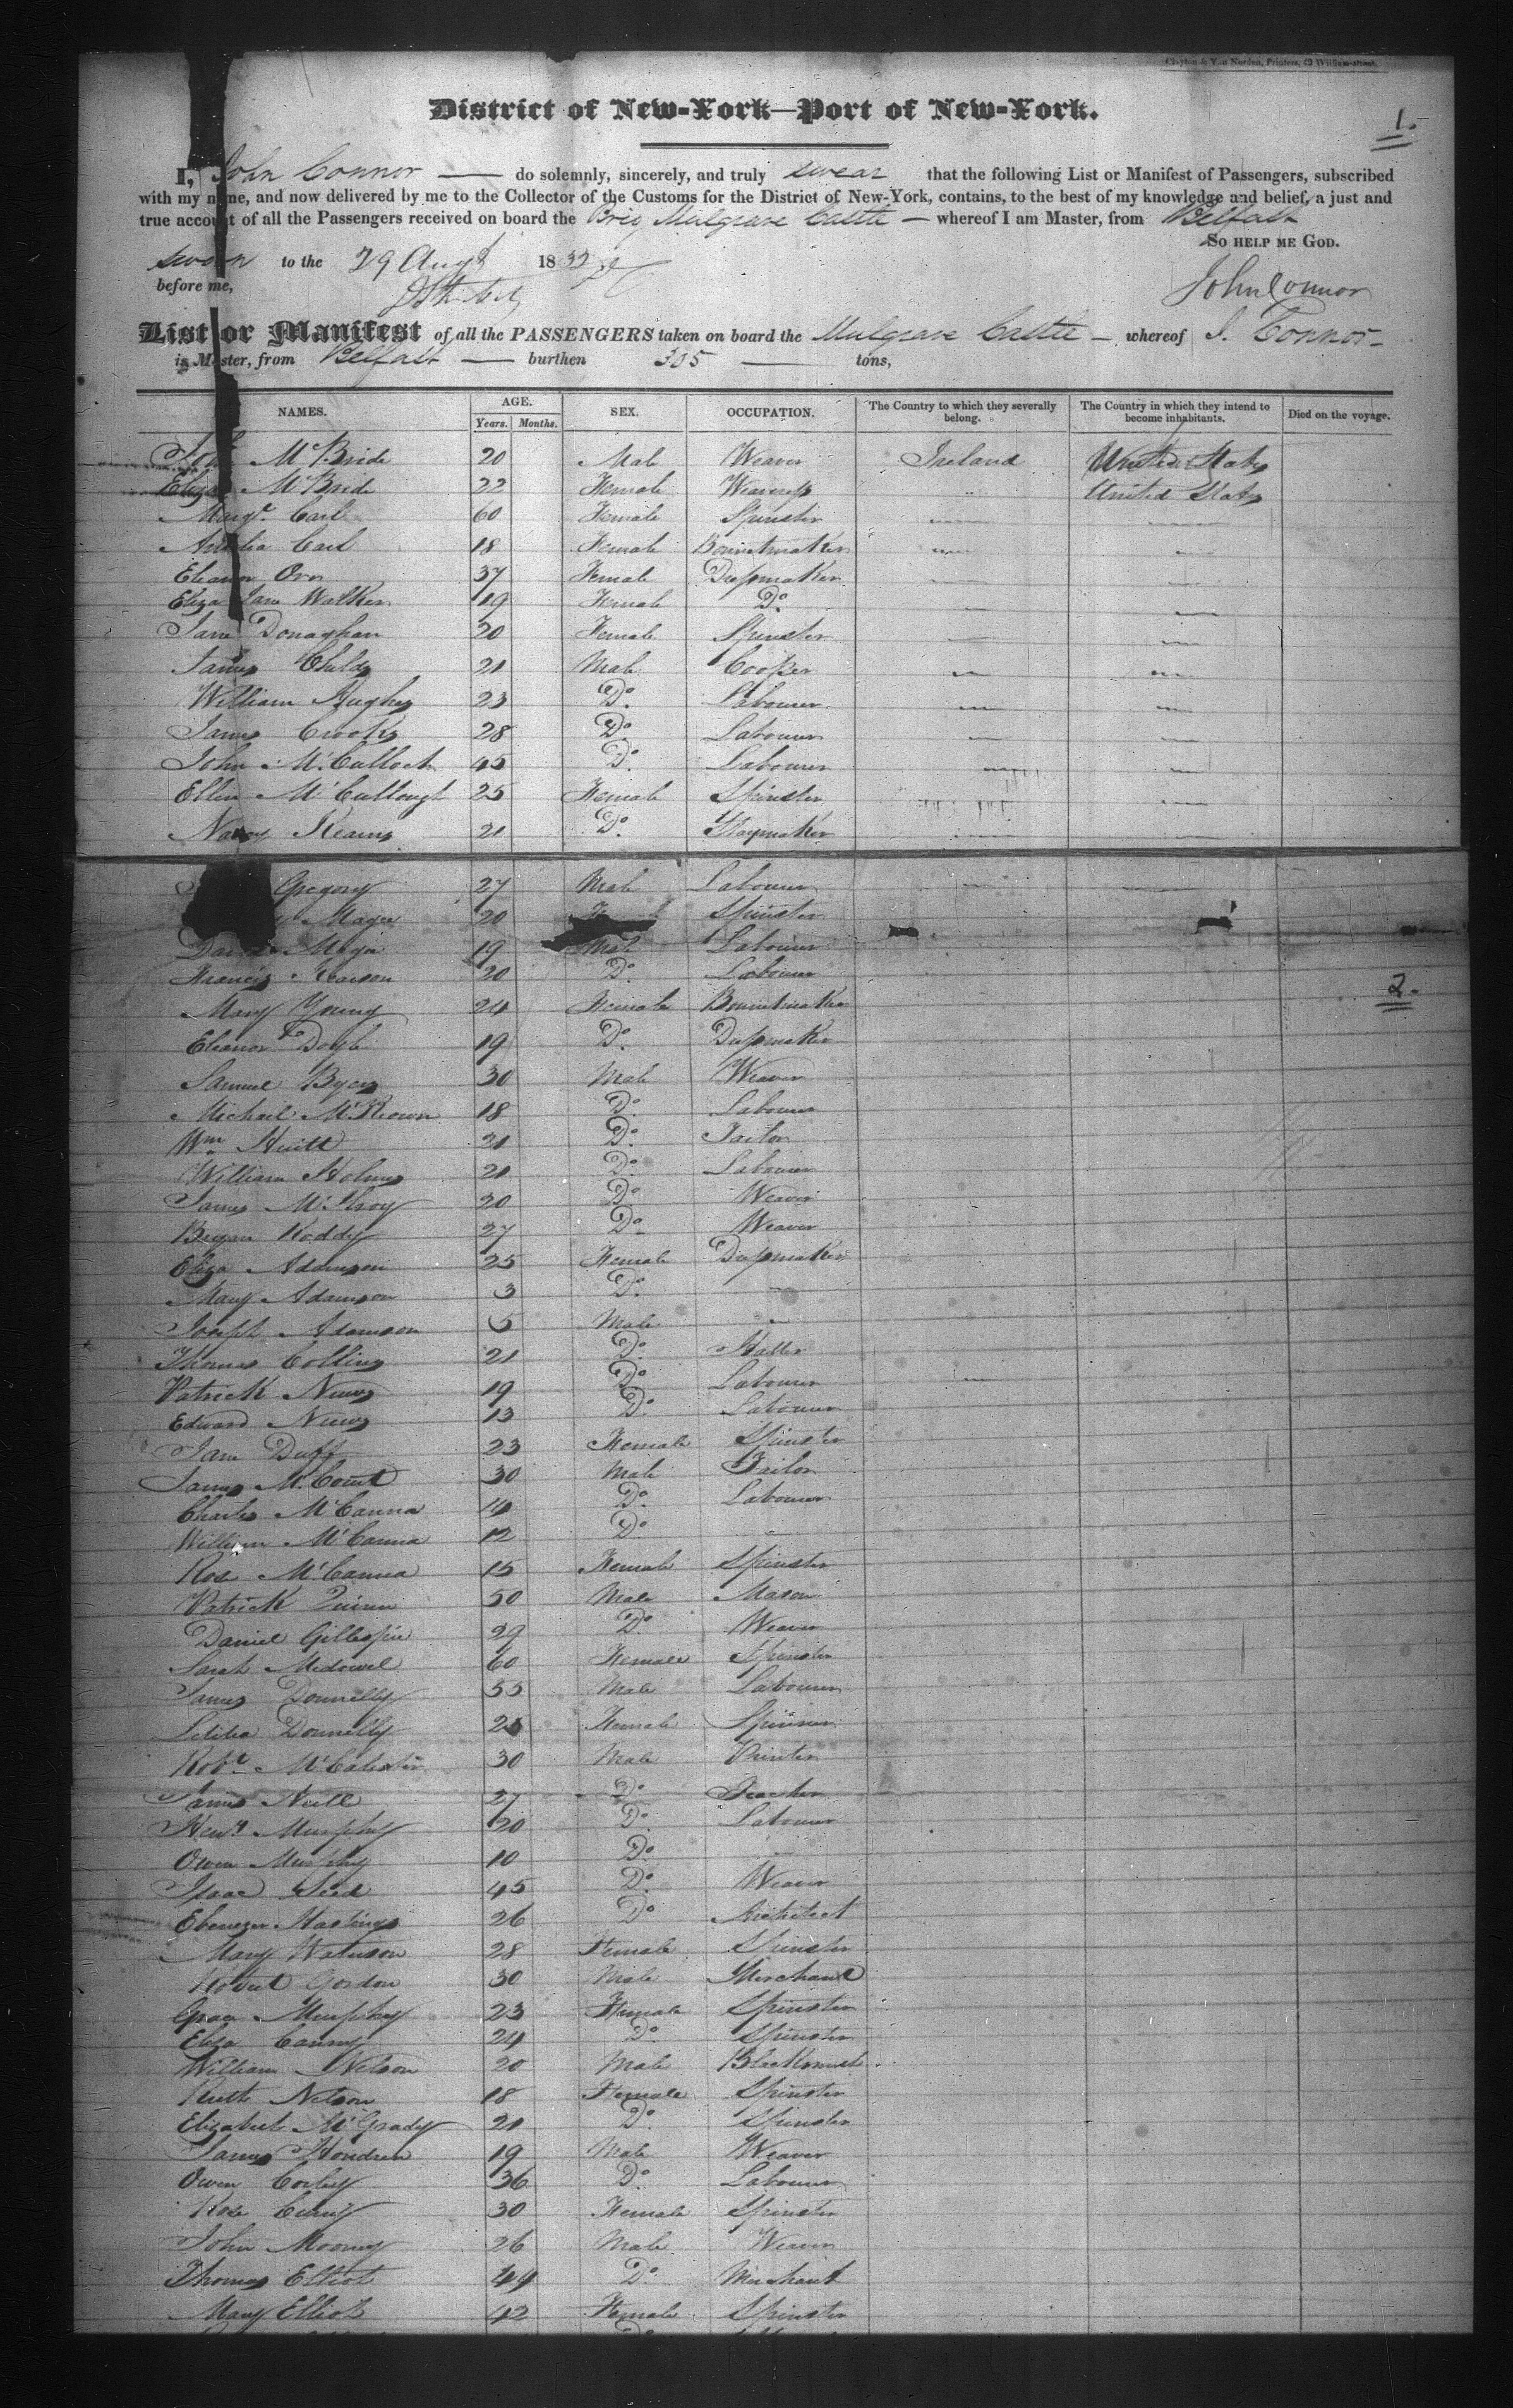 Clayton & Van Norden, Printers, 42 William-street.
District of New-York—Port of New-York.
1.
I, John Connor do solemnly, sincerely, and truly swear that the following List or Manifest of Passengers, subscribed
with my name, and now delivered by me to the Collector of the Customs for the District of New-York, contains, to the best of my knowledge and belief, a just and
true account of all the Passengers received on board the Brig Mulgrave Castle whereof I am Master, from Belfast
So HELP ME GOD.
sworn to the 29 Augt 1832
before me,
John Connor
List or Manifest of all the PASSENGERS taken on board the Mulgrave Castle whereof J. Connor
is Master, from Belfast burthen tons,
NAMES. AGE. SEX. OCCUPATION. The Country to which they severally belong. The Country in which they intend to become inhabitants. Died on the voyage.
Years. Months.
John McBride 20 Male Weaver Ireland United States
Eliza McBride 22 Female Weaveress United States
Margt. Carl 60 Female Spinster
Carl 18 Female Bonnetmaker
Eleanor Orr 37 Female Dressmaker
Eliza Jane Walker 19 Female Do.
Jane Donaghan 20 Female Spinster
James Childs 21 Male Cooper
William Hughes 23 Do. Labourer
James Crooks 28 Do. Labourer
John McCulloch 45 Do. Labourer
Ellen McCullough 25 Female Spinster
Nancy Kearns 21 Do. Staymaker
Gregory 27 Male Labourer
Magee 20 Spinster
David 19 Male Labourer
Francis 20 Do. Labourer
2.
Mary Young 24 Female Bonnetmaker
Eleanor Doyle 19 Do. Dressmaker
Samuel Byers 30 Male Weaver
Michael McKeown 18 Do. Labourer
Wm. Hewitt 21 Do. Tailor
William Holmes 21 Do. Labourer
James McIlroy 20 Do. Weaver
Bryan Roddy 27 Do. Weaver
Eliza Adamson 25 Female Dressmaker
Mary Adamson 3 Do.
Joseph Adamson 5 Male
Thomas Collins 21 Do. Hatter
Patrick 19 Do. Labourer
Edward 13 Do. Labourer
Jane Duff 23 Female Spinster
James McCourt 30 Male Tailor
Charles McCanna 14 Do. Labourer
William McCanna 12 Do.
Rose McCanna 15 Female Spinster
Patrick Quinn 50 Male Mason
Daniel Gillespie 29 Do. Weaver
Sarah Mcdowel 60 Female Spinster
James Donnelly 55 Male Labourer
Letitia Donnelly 25 Female Spinner
Robt. 30 Male Printer
James Neill 27 Do. Teacher
Heny. Murphy 20 Do. Labourer
Owen Murphy 10 Do.
Isaac 45 Do. Weaver
Ebenezer Hastings 26 Do. Architect
Mary Waterson 28 Female Spinster
Robert Gordon 30 Male Merchant
Grace Murphy 23 Female Spinster
Eliza 24 Do. Spinster
William Nelson 20 Male Blacksmith
Ruth Nelson 18 Female Spinster
Elizabeth McGrady 21 Do. Spinster
James Hendren 19 Male Weaver
Owen Corley 36 Do. Labourer
Rose 30 Female Spinster
John Mooney 26 Male Weaver
Thomas Elliot 44 Do. Merchant
Mary Elliot 42 Female Spinster